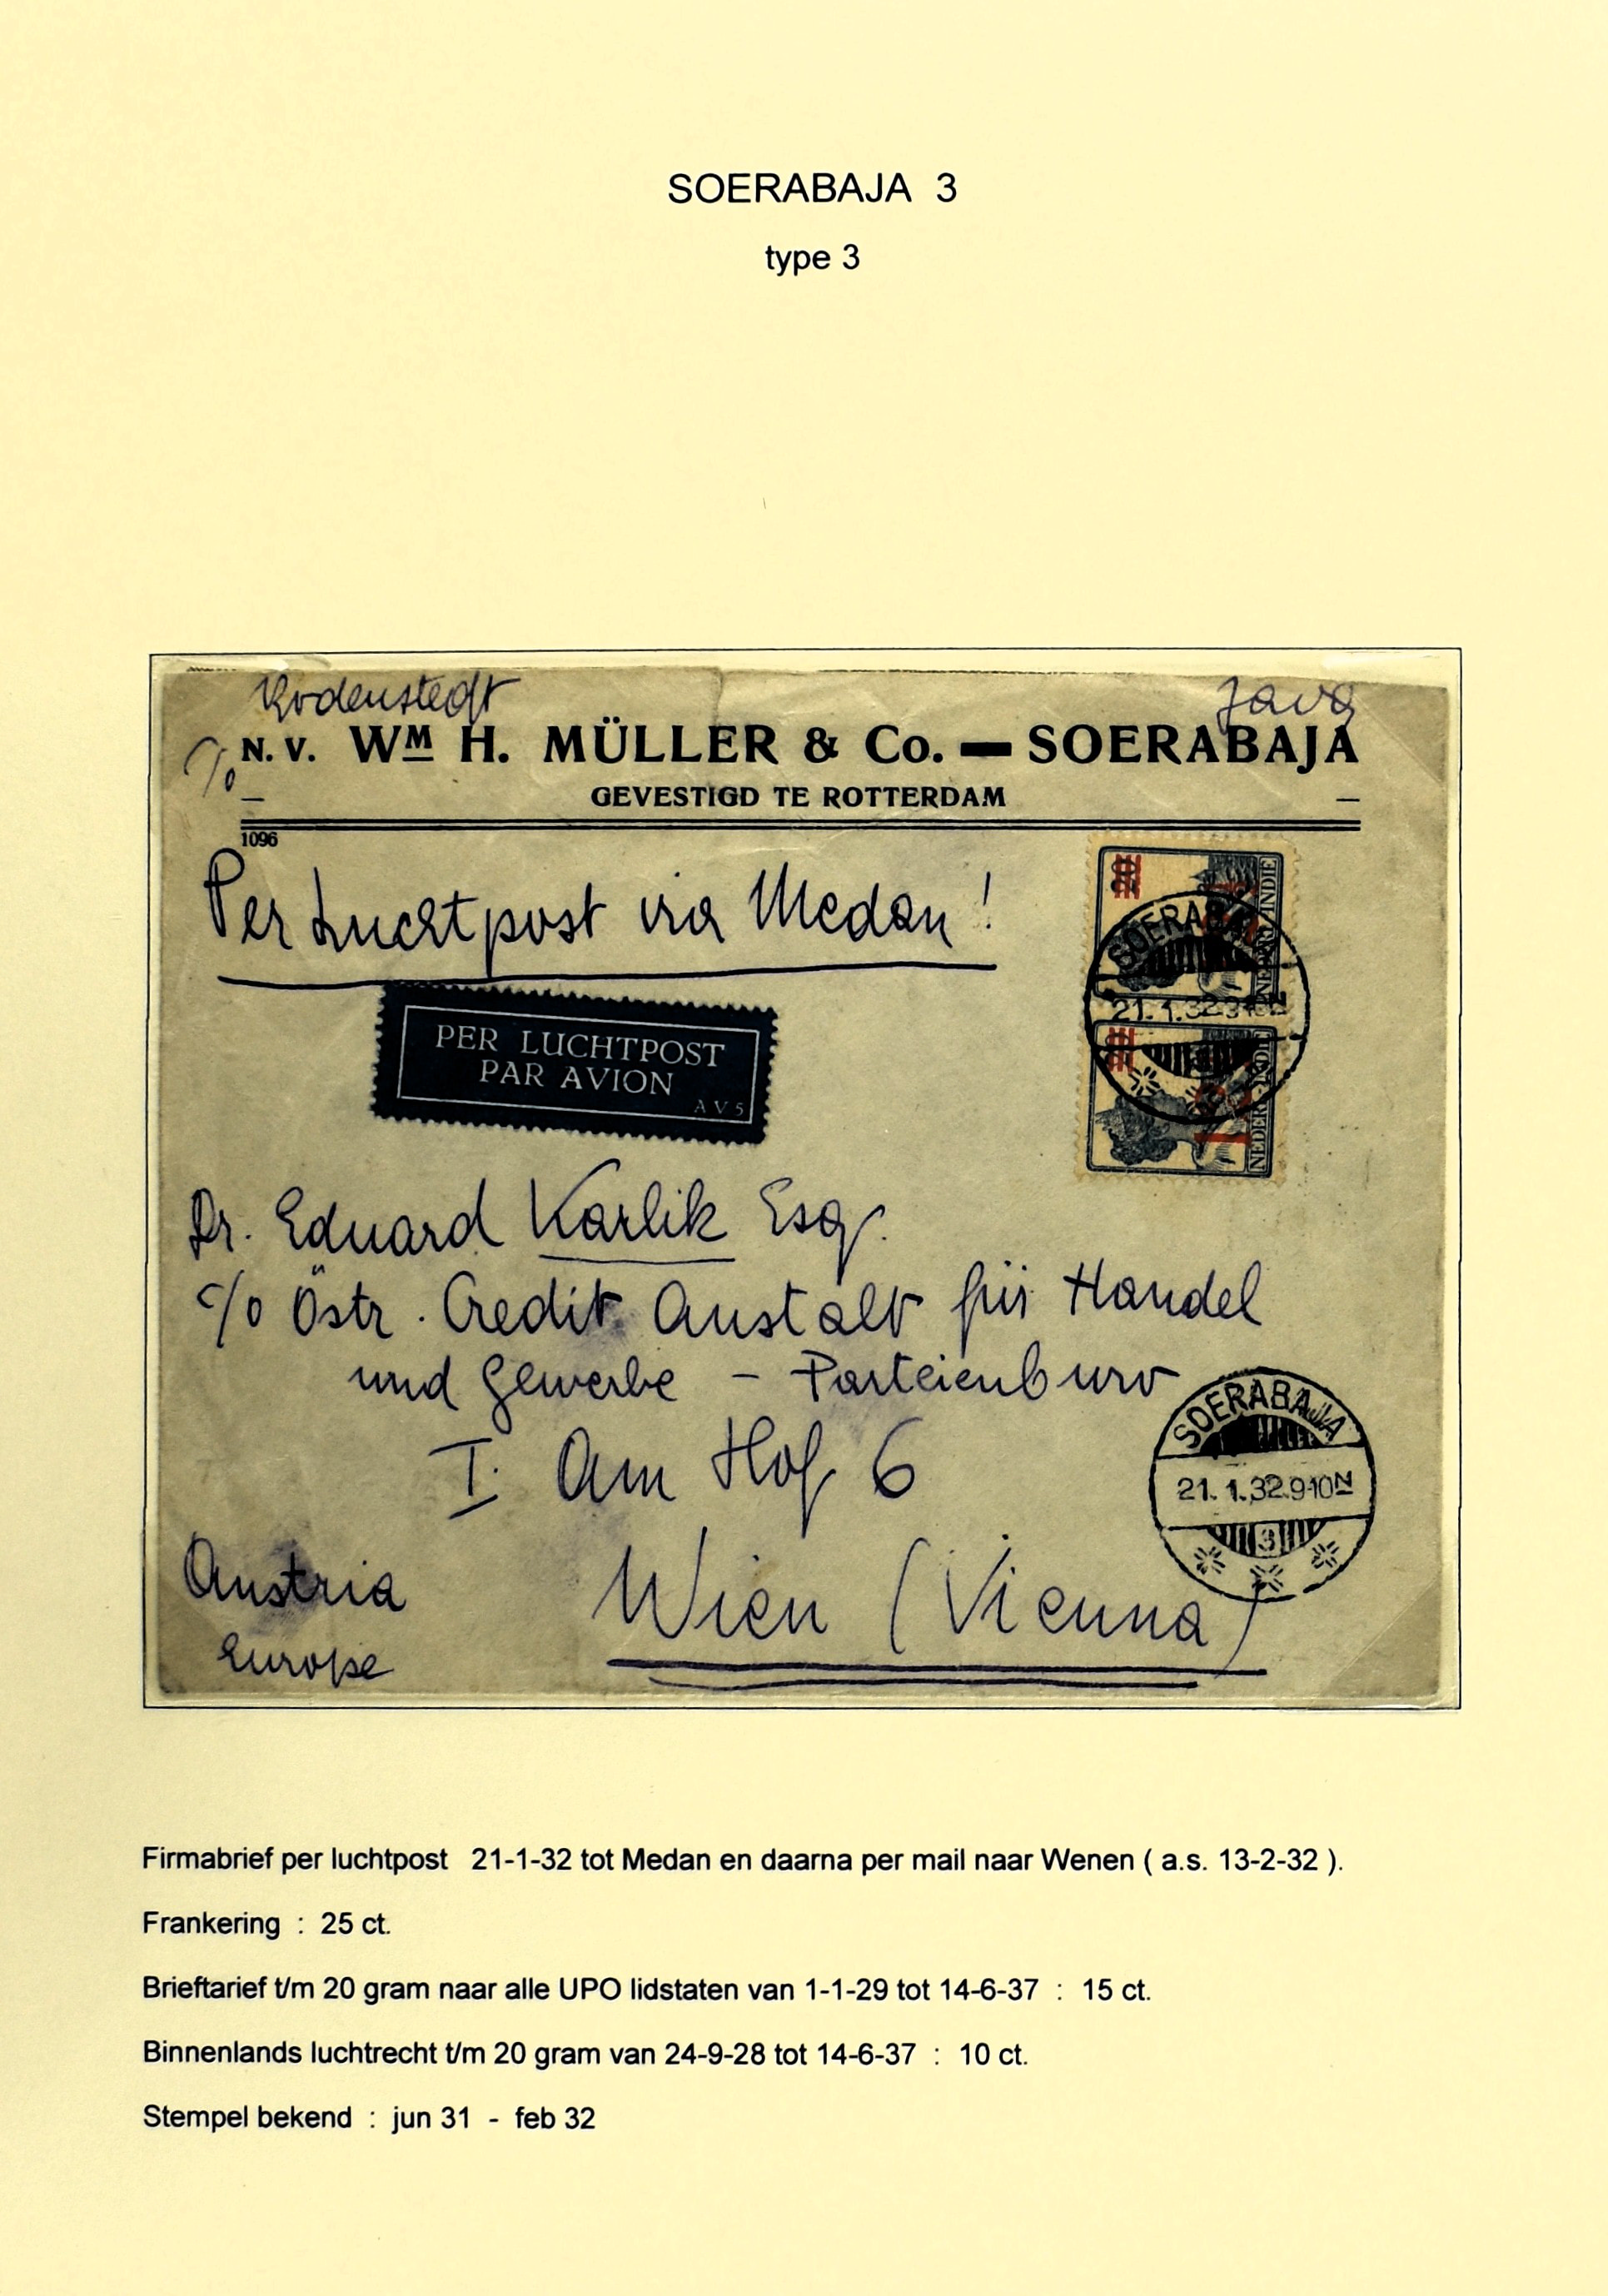 SOERABAJA 3
type 3
Bodenstedt
Java
c/o N.V. WM H. MÜLLER & Co. — SOERABAJA
GEVESTIGD TE ROTTERDAM
1096
Per Luchtpost via Medan!
20
NEDERL. INDIE
SOERABAJA
21.1.32.9-10N
NEDERL. INDIE
PER LUCHTPOST
PAR AVION
AV5
Dr. Eduard Karlik Esq.
c/o Östr. Credit Anstalt für Handel
und Gewerbe - Parteienburo
I. Am Hof 6
SOERABAJA
21.1.32.9-10N
3
Austria
Wien (Vienna)
Europe
Firmabrief per luchtpost 21-1-32 tot Medan en daarna per mail naar Wenen ( a.s. 13-2-32 ).
Frankering : 25 ct.
Brieftarief t/m 20 gram naar alle UPO lidstaten van 1-1-29 tot 14-6-37 : 15 ct.
Binnenlands luchtrecht t/m 20 gram van 24-9-28 tot 14-6-37 : 10 ct.
Stempel bekend : jun 31 - feb 32